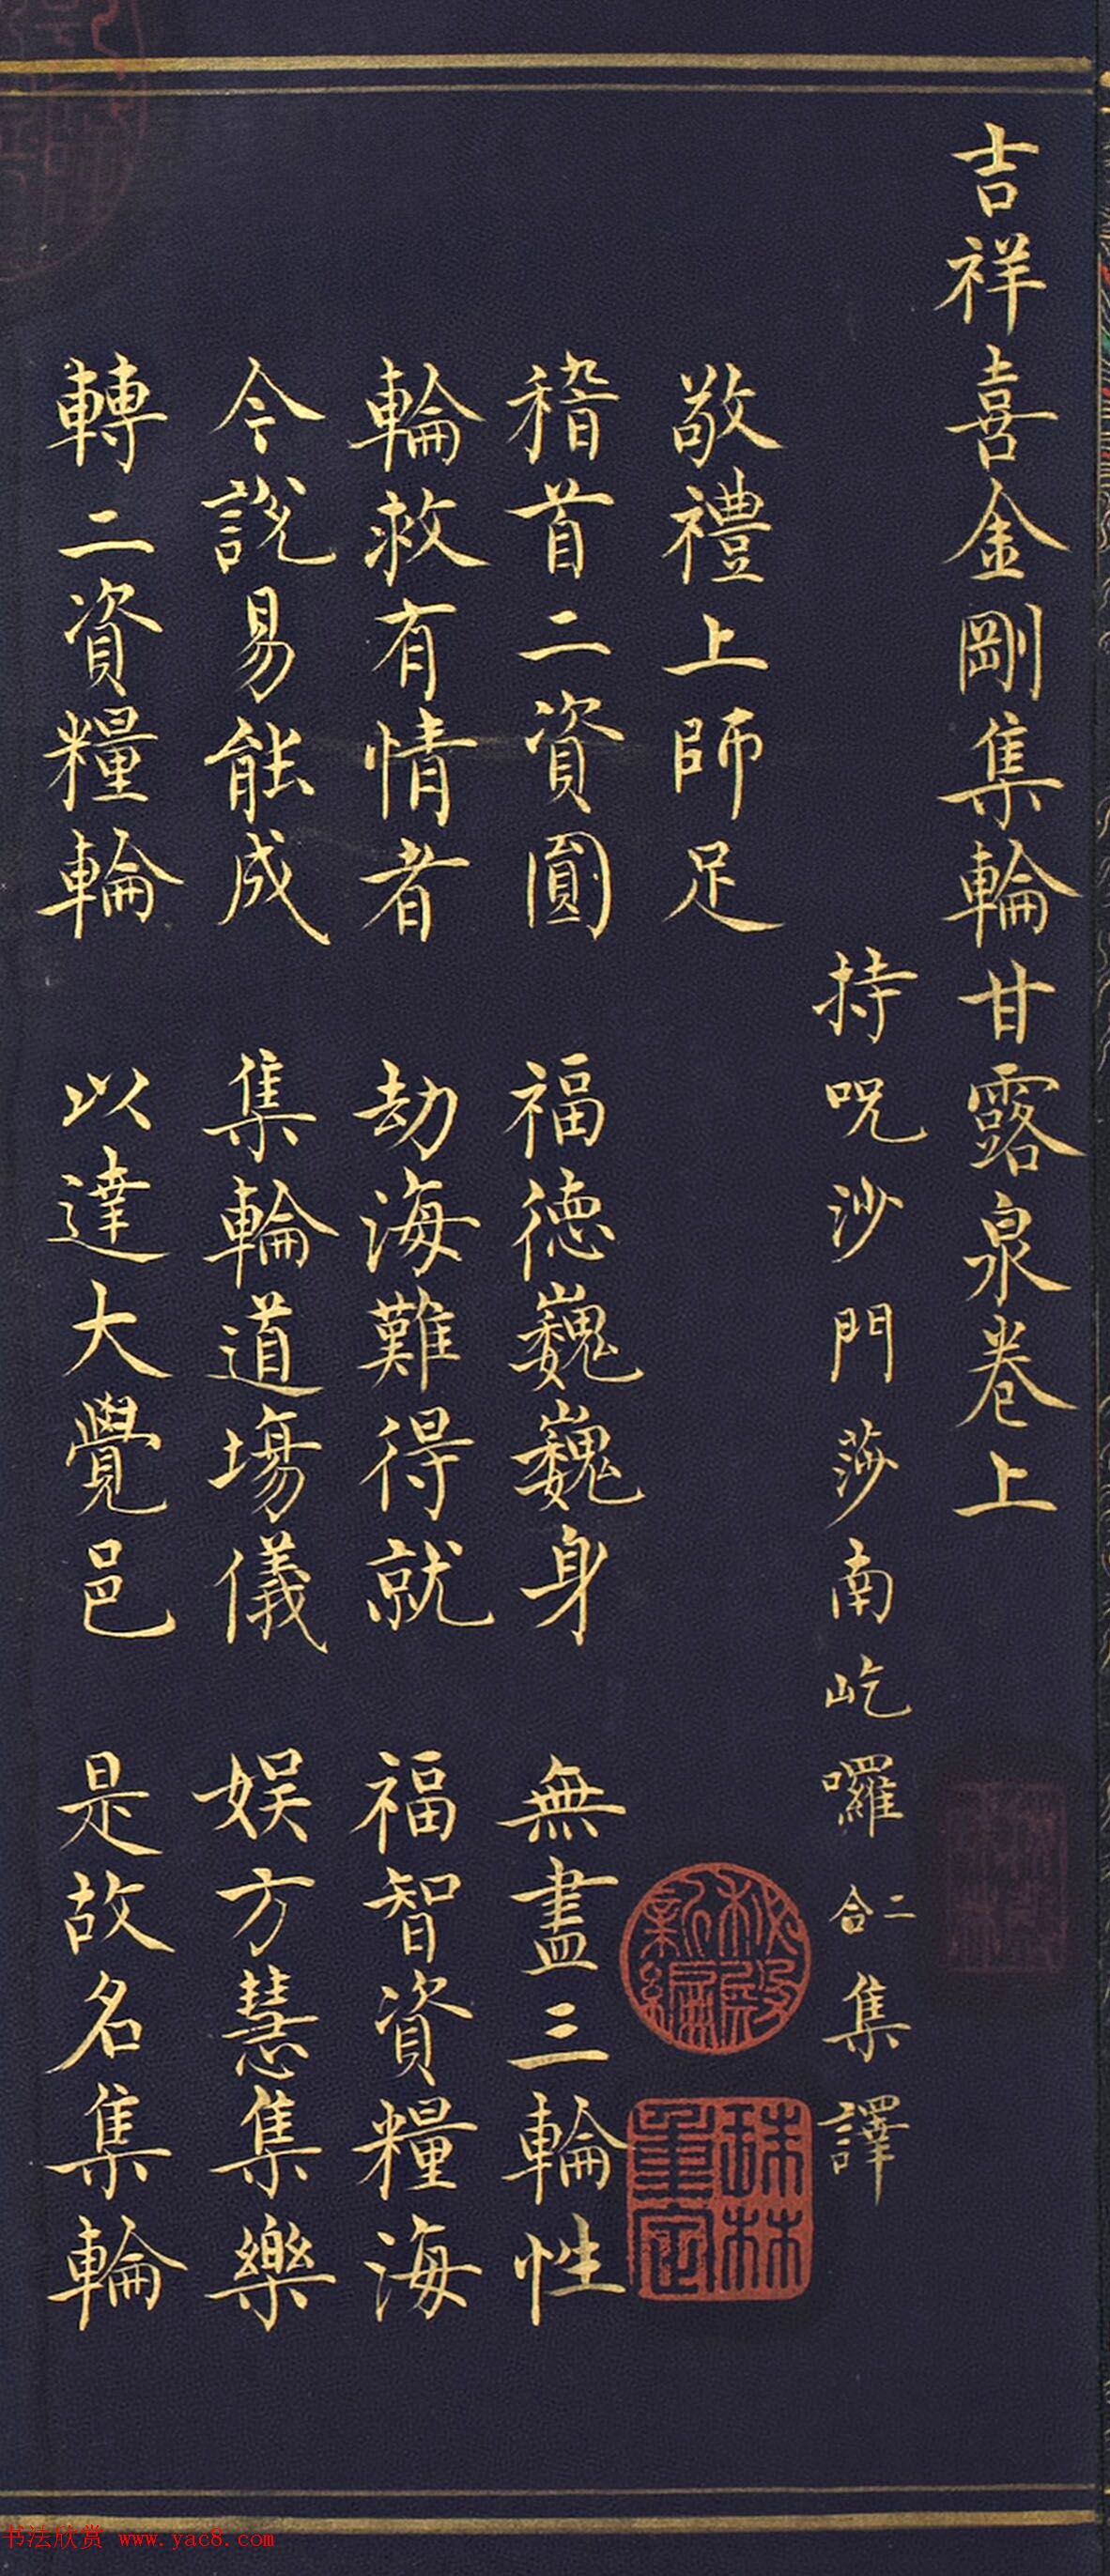 吉祥喜金剛集輪甘露泉卷上
持呪沙門莎南屹囉二合集譯
敬禮上師足
稽首二資圓 福德巍巍身 無盡三輪性
輪救有情者 劫海難得就 福智資糧海
今説易能成 集輪道場儀 娛方慧集樂
轉二資糧輪 以達大覺邑 是故名集輪
秘殿新編
珠林重定
书法欣赏 www.yac8.com